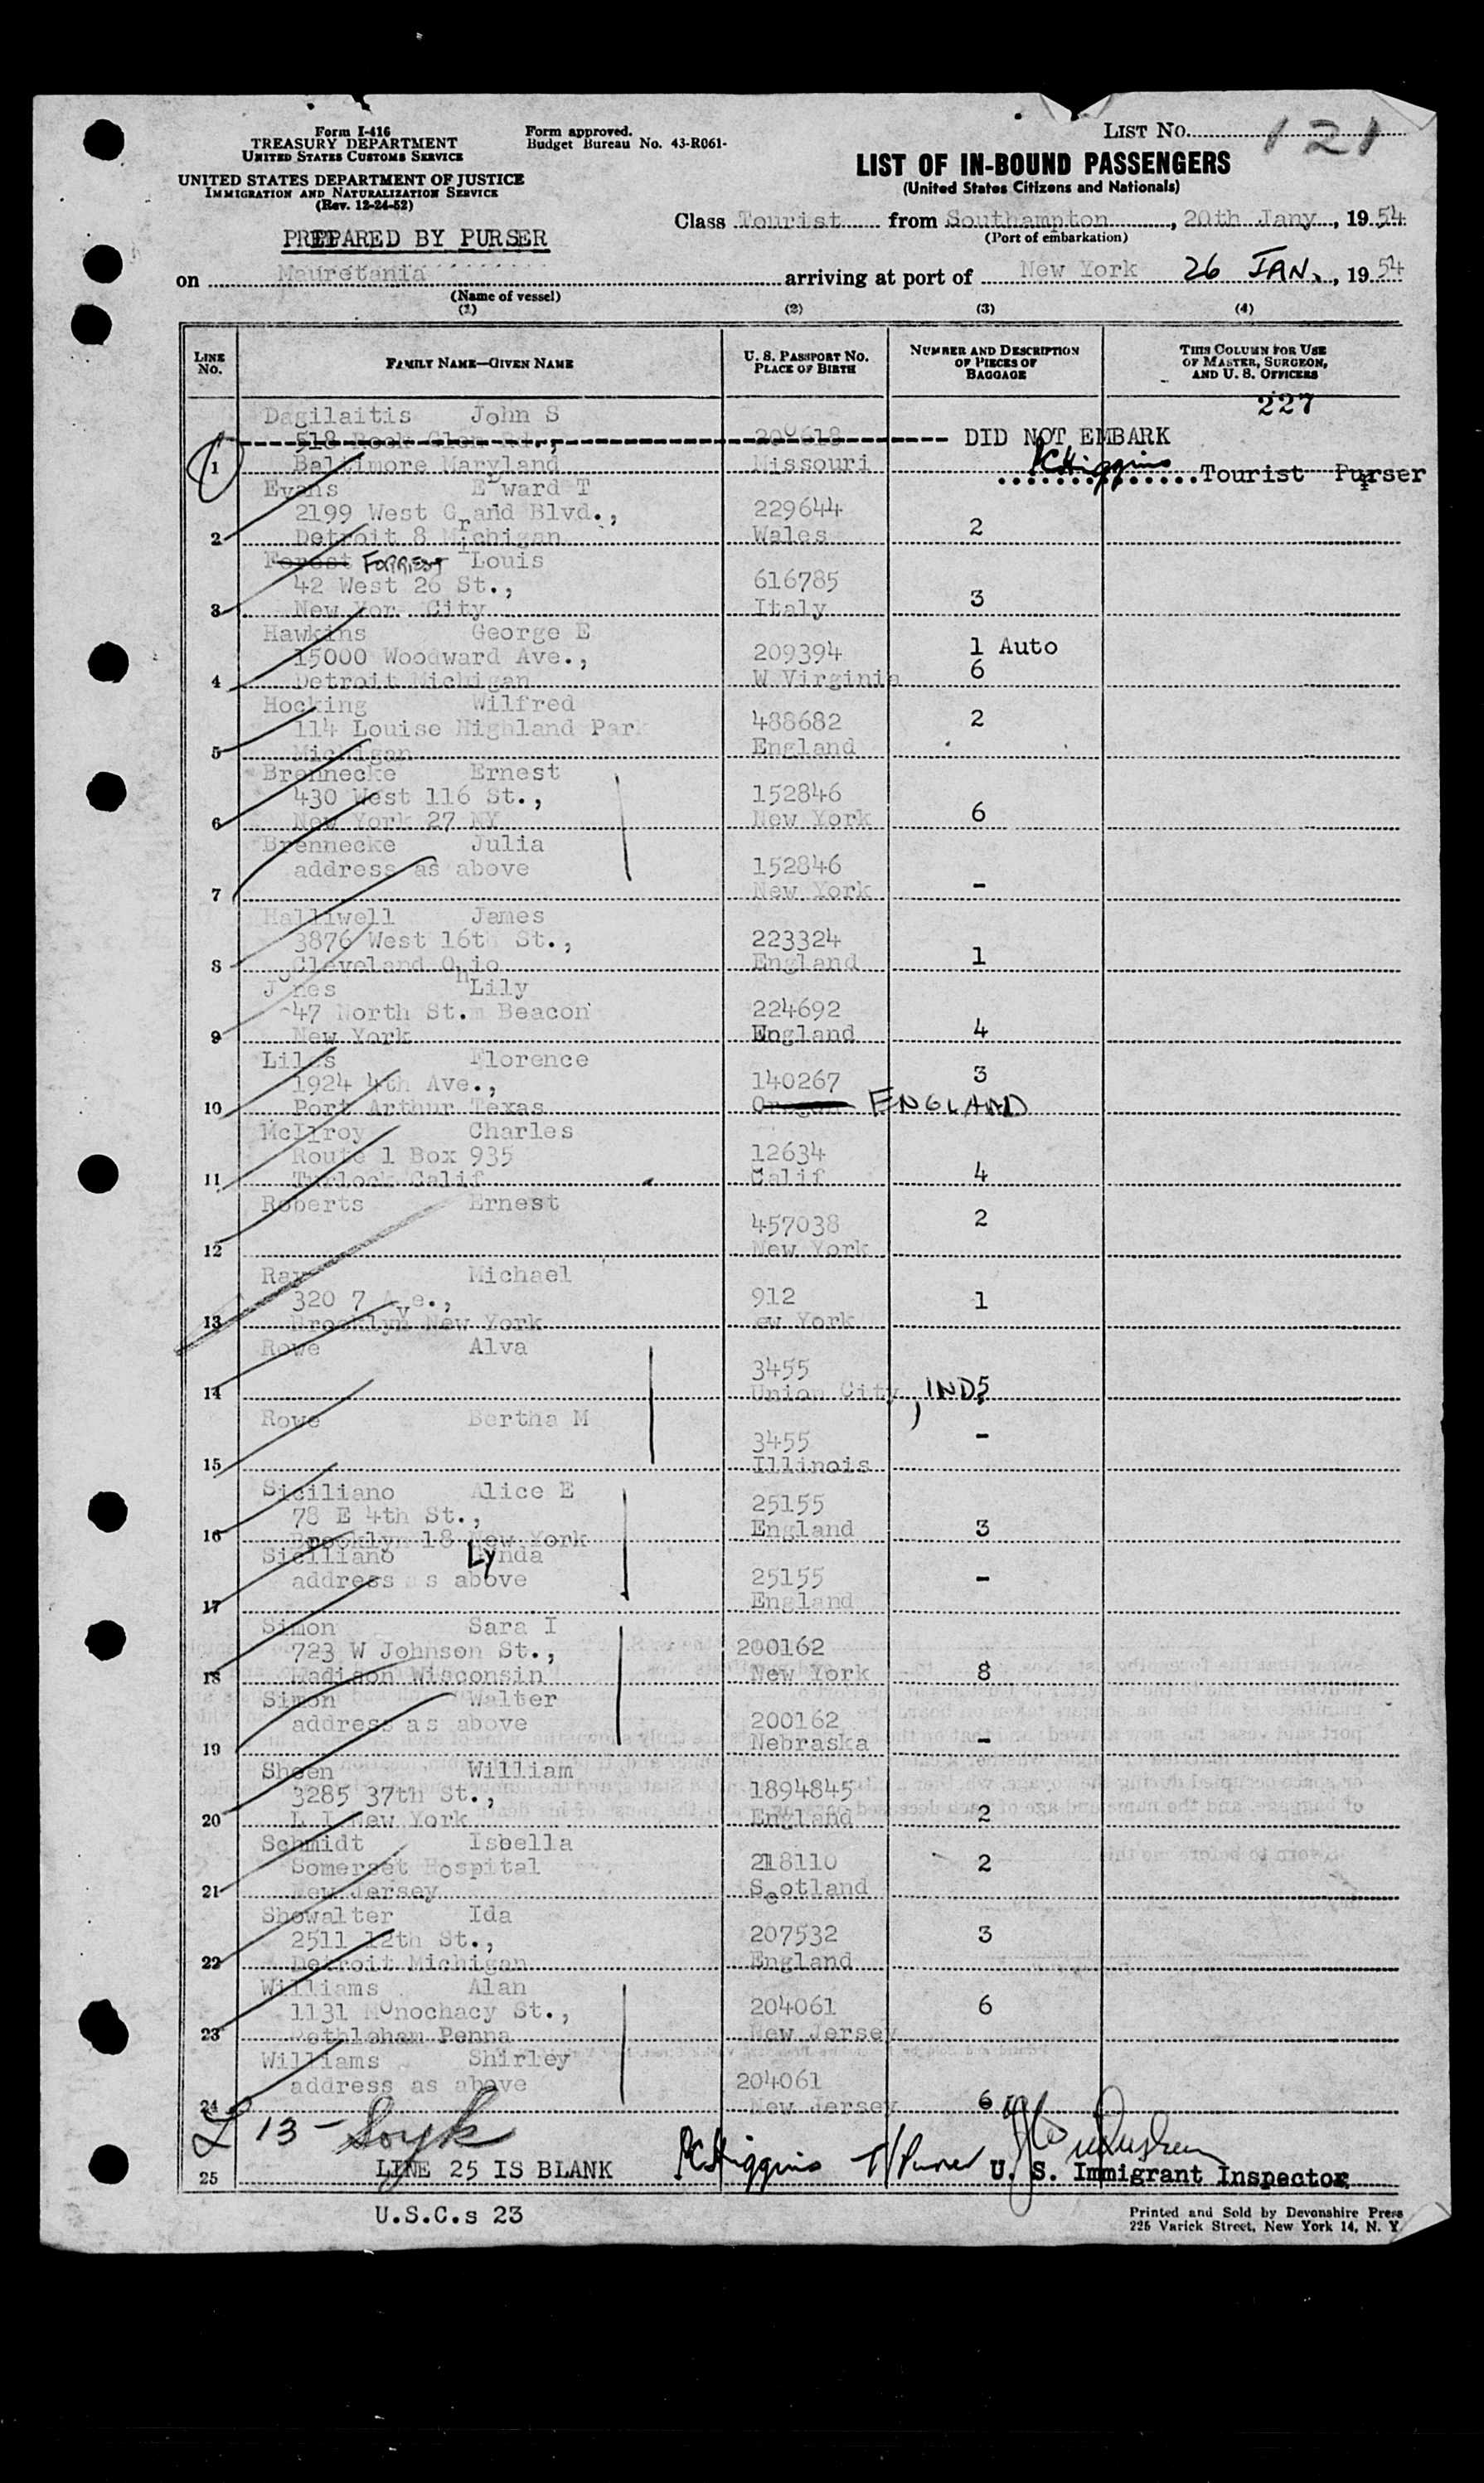 Form I-416
TREASURY DEPARTMENT
UNITED STATES CUSTOMS SERVICE
UNITED STATES DEPARTMENT OF JUSTICE
IMMIGRATION AND NATURALIZATION SERVICE
(Rev. 12-24-52)
PREPARED BY PURSER
Form approved.
Budget Bureau No. 43-R061-
LIST NO. 121
LIST OF IN-BOUND PASSENGERS
(United States Citizens and Nationals)
Class Tourist from Southampton, 20th Jany, 1954
(Port of embarkation)
on Mauretania arriving at port of New York 26 JAN., 1954
(Name of vessel)
(1) (2) (3) (4)
LINE NO. FAMILY NAME—GIVEN NAME U. S. PASSPORT NO. PLACE OF BIRTH NUMBER AND DESCRIPTION OF PIECES OF BAGGAGE THIS COLUMN FOR USE OF MASTER, SURGEON, AND U. S. OFFICERS
227
Dagilaitis John S
518 Rock Glen Rd., 200618 DID NOT EMBARK
1 Baltimore Maryland Missouri KHiggins Tourist Purser
Evans Edward T
2199 West Grand Blvd., 229644
2 Detroit 8 Michigan Wales 2
Forest FORREST Louis
42 West 26 St., 616785
3 New Yor City Italy 3
Hawkins George E
15000 Woodward Ave., 209394 1 Auto
4 Detroit Michigan W Virginia 6
Hocking Wilfred
114 Louise Highland Park 488682 2
5 Michigan England
Brennecke Ernest
430 West 116 St., 152846
6 New York 27 NY New York 6
Brennecke Julia
address as above 152846
7 New York -
Halliwell James
3876 West 16th St., 223324
8 Cleveland Ohio England 1
Jones Lily
47 North St. Beacon 224692
9 New York England 4
Liles Florence
1924 4th Ave., 140267 3
10 Port Arthur Texas ENGLAND
McIlroy Charles
Route 1 Box 935 12634
11 Turlock Calif Calif 4
Roberts Ernest
457038 2
12 New York
Ray Michael
320 7 Ave., 912 1
13 Brooklyn New York ew York
Rowe Alva
3455
14 Union City, IND. 5
Rowe Bertha M
3455 -
15 Illinois
Siciliano Alice E
78 E 4th St., 25155
16 Brooklyn 18 New York England 3
Siciliano Lynda
address s above 25155 -
17 England
Simon Sara I
723 W Johnson St., 200162
18 Madison Wisconsin New York 8
Simon Walter
address as above 200162
19 Nebraska -
Sheen William
3285 37th St., 1894845
20 L I New York England 2
Schmidt Isbella
Somerset Hospital 218110 2
21 New Jersey Scotland
Showalter Ida
2511 12th St., 207532 3
22 Detroit Michigan England
Williams Alan
1131 Monochacy St., 204061 6
23 Bethleham Penna New Jersey
Williams Shirley
address as above 204061
24 New Jersey 6
L 13 -
25 LINE 25 IS BLANK KHiggins T/Purser U. S. Immigrant Inspector
U.S.C.s 23
Printed and Sold by Devonshire Press
225 Varick Street, New York 14, N. Y.